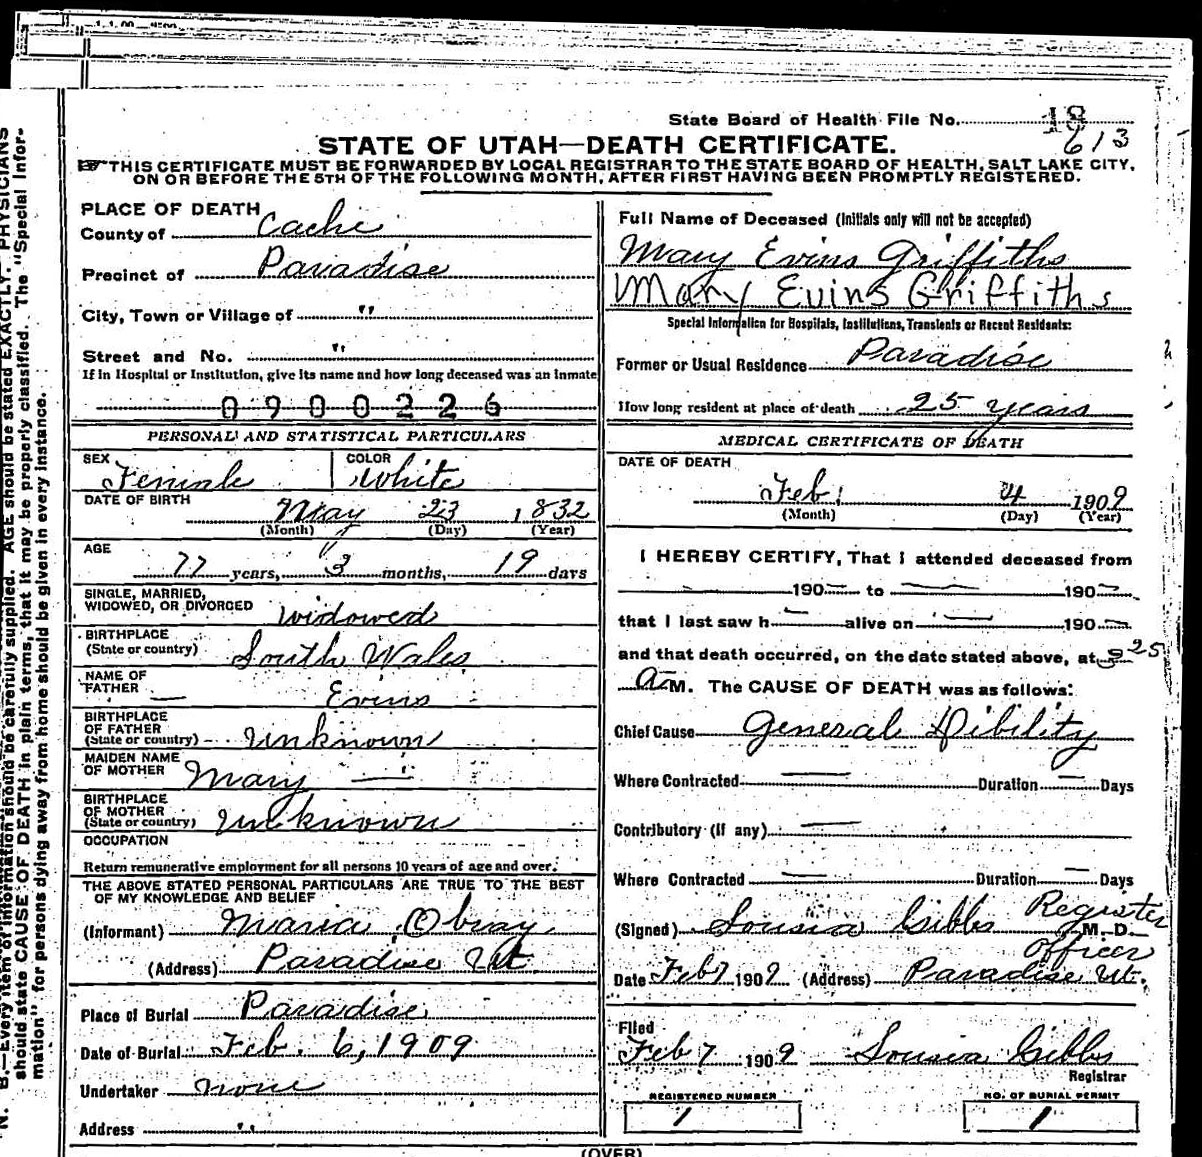 State Board of Health File No. 18
613
STATE OF UTAH—DEATH CERTIFICATE.
THIS CERTIFICATE MUST BE FORWARDED BY LOCAL REGISTRAR TO THE STATE BOARD OF HEALTH, SALT LAKE CITY,
ON OR BEFORE THE 5TH OF THE FOLLOWING MONTH, AFTER FIRST HAVING BEEN PROMPTLY REGISTERED.
PLACE OF DEATH
County of Cache
Precinct of Paradise
City, Town or Village of "
Street and No. "
If in Hospital or Institution, give its name and how long deceased was an inmate
0900226
PERSONAL AND STATISTICAL PARTICULARS
SEX Female COLOR White
DATE OF BIRTH May 23 1832
(Month) (Day) (Year)
AGE 77 years, 3 months, 19 days
SINGLE, MARRIED,
WIDOWED, OR DIVORCED widowed
BIRTHPLACE
(State or country) South Wales
NAME OF
FATHER — Evins
BIRTHPLACE
OF FATHER
(State or country) Unknown
MAIDEN NAME
OF MOTHER Mary —
BIRTHPLACE
OF MOTHER
(State or country) Unknown
OCCUPATION
Return remunerative employment for all persons 10 years of age and over.
THE ABOVE STATED PERSONAL PARTICULARS ARE TRUE TO THE BEST
OF MY KNOWLEDGE AND BELIEF
(Informant) Maria Obray
(Address) Paradise Ut
Place of Burial Paradise
Date of Burial Feb. 6, 1909
Undertaker none
Address "
Full Name of Deceased (Initials only will not be accepted)
Mary Evins Griffiths
Mary Evins Griffiths
Special Information for Hospitals, Institutions, Transients or Recent Residents:
Former or Usual Residence Paradise
How long resident at place of death 25 years
MEDICAL CERTIFICATE OF DEATH
DATE OF DEATH
Feb. 4 1909
(Month) (Day) (Year)
I HEREBY CERTIFY, That I attended deceased from
— 190— to — 190—
that I last saw h— alive on — 190—
and that death occurred, on the date stated above, at 3 25
A M. The CAUSE OF DEATH was as follows:
Chief Cause General Dibility
Where Contracted — Duration — Days
Contributory (if any) —
Where Contracted — Duration — Days
(Signed) Lousia Gibbs Register M. D.
officer
Date Feb 7 1909 (Address) Paradise Ut.
Filed
Feb 7 1909 Lousia Gibbs
Registrar
REGISTERED NUMBER NO. OF BURIAL PERMIT
1 1
(OVER)
N. B.—Every item of information should be carefully supplied. AGE should be stated EXACTLY. PHYSICIANS
should state CAUSE OF DEATH in plain terms, that it may be properly classified. The "Special Infor-
mation" for persons dying away from home should be given in every instance.